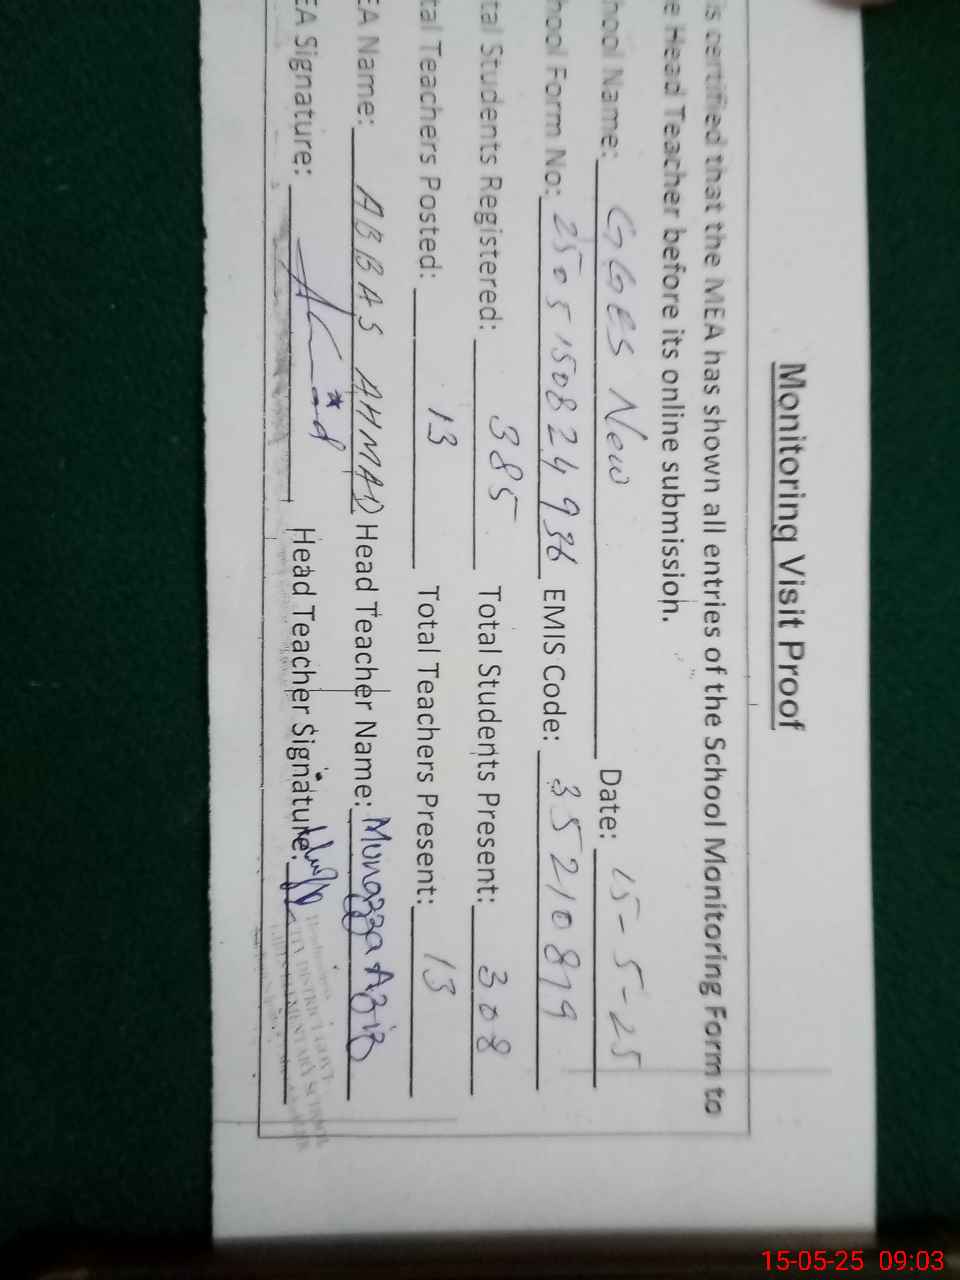 Monitoring Visit Proof
is certified that the MEA has shown all entries of the School Monitoring Form to
e Head Teacher before its online submission.
hool Name: GGES New Date: 15-5-25
hool Form No: 2505150824936 EMIS Code: 35210879
tal Students Registered: 385 Total Students Present: 308
tal Teachers Posted: 13 Total Teachers Present: 13
EA Name: ABBAS AHMAD Head Teacher Name: Mungzza Aziz
EA Signature: Head Teacher Signature:
15-05-25 09:03